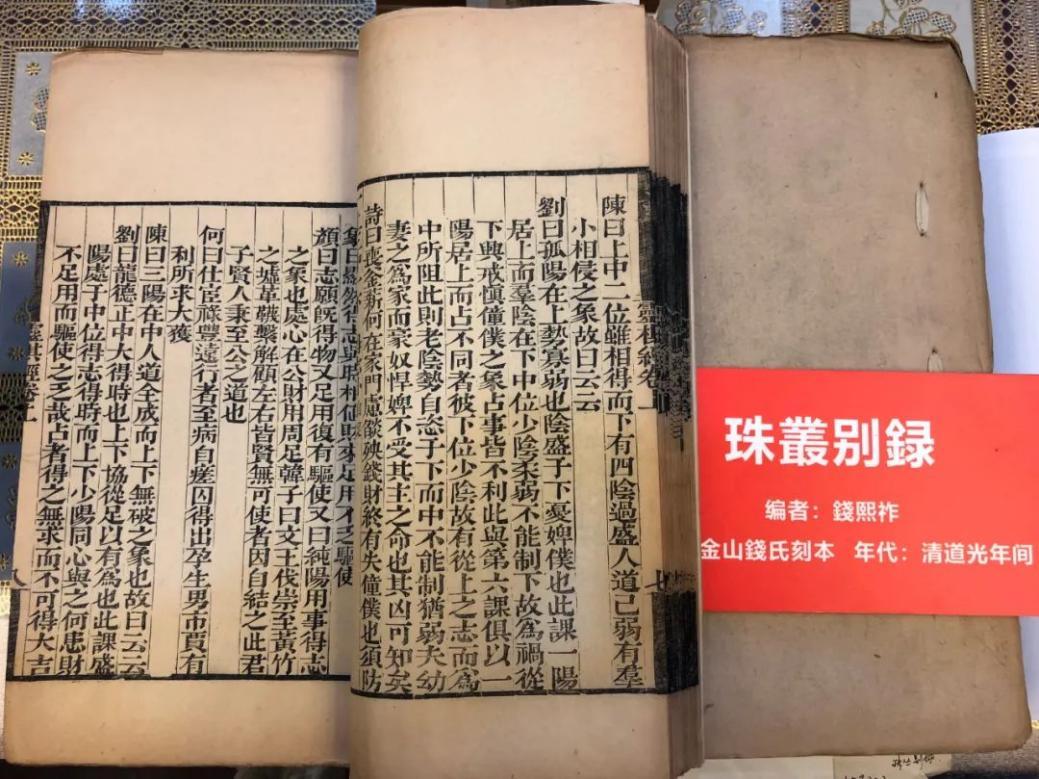 靈棋經卷上
七
陳曰上中二位雖相得而下有四陰過盛人道已弱有羣
小相侵之象故曰云云
劉曰孤陽在上勢寡弱也陰盛于下憂婢僕也此課一陽
居上而羣陰在下中位少陰柔弱不能制下故為禍從
下興戒慎僮僕之象占事皆不利此與第六課俱以一
陽居上而占不同者彼下位少陰故有從上之志而為
中所阻此則老陰勢自恣于下而中不能制猶弱夫幼
妻之為家而豪奴悍婢不受其主之命也其凶可知矣
詩曰喪釜新何在家門慮燄殃錢財終有失僮僕也須防
象曰得志與時相財來足用不乏驅使
顏曰志願旣得物又足用復有驅使又曰純陽用事得志
之象也處心在公財用周足韓子曰文王伐崇至黃竹
之墟革韈繫解顧左右皆賢無可使者因自結之此君
子賢人秉至公之道也
何曰仕宦祿豐遠行者至病自瘥囚得出孕生男市賈有
利所求大獲
陳曰三陽在中人道全成而上下無破之象也故曰云云
劉曰龍德正中大得時也上下協從足以有為也此課盛
陽處于中位得志得時而上下少陽同心與之何患財
不足用而驅使之乏哉占者得之無求而不可得大吉
靈棋經卷上
八
珠叢别録
编者：錢熙祚
金山錢氏刻本 年代：清道光年间